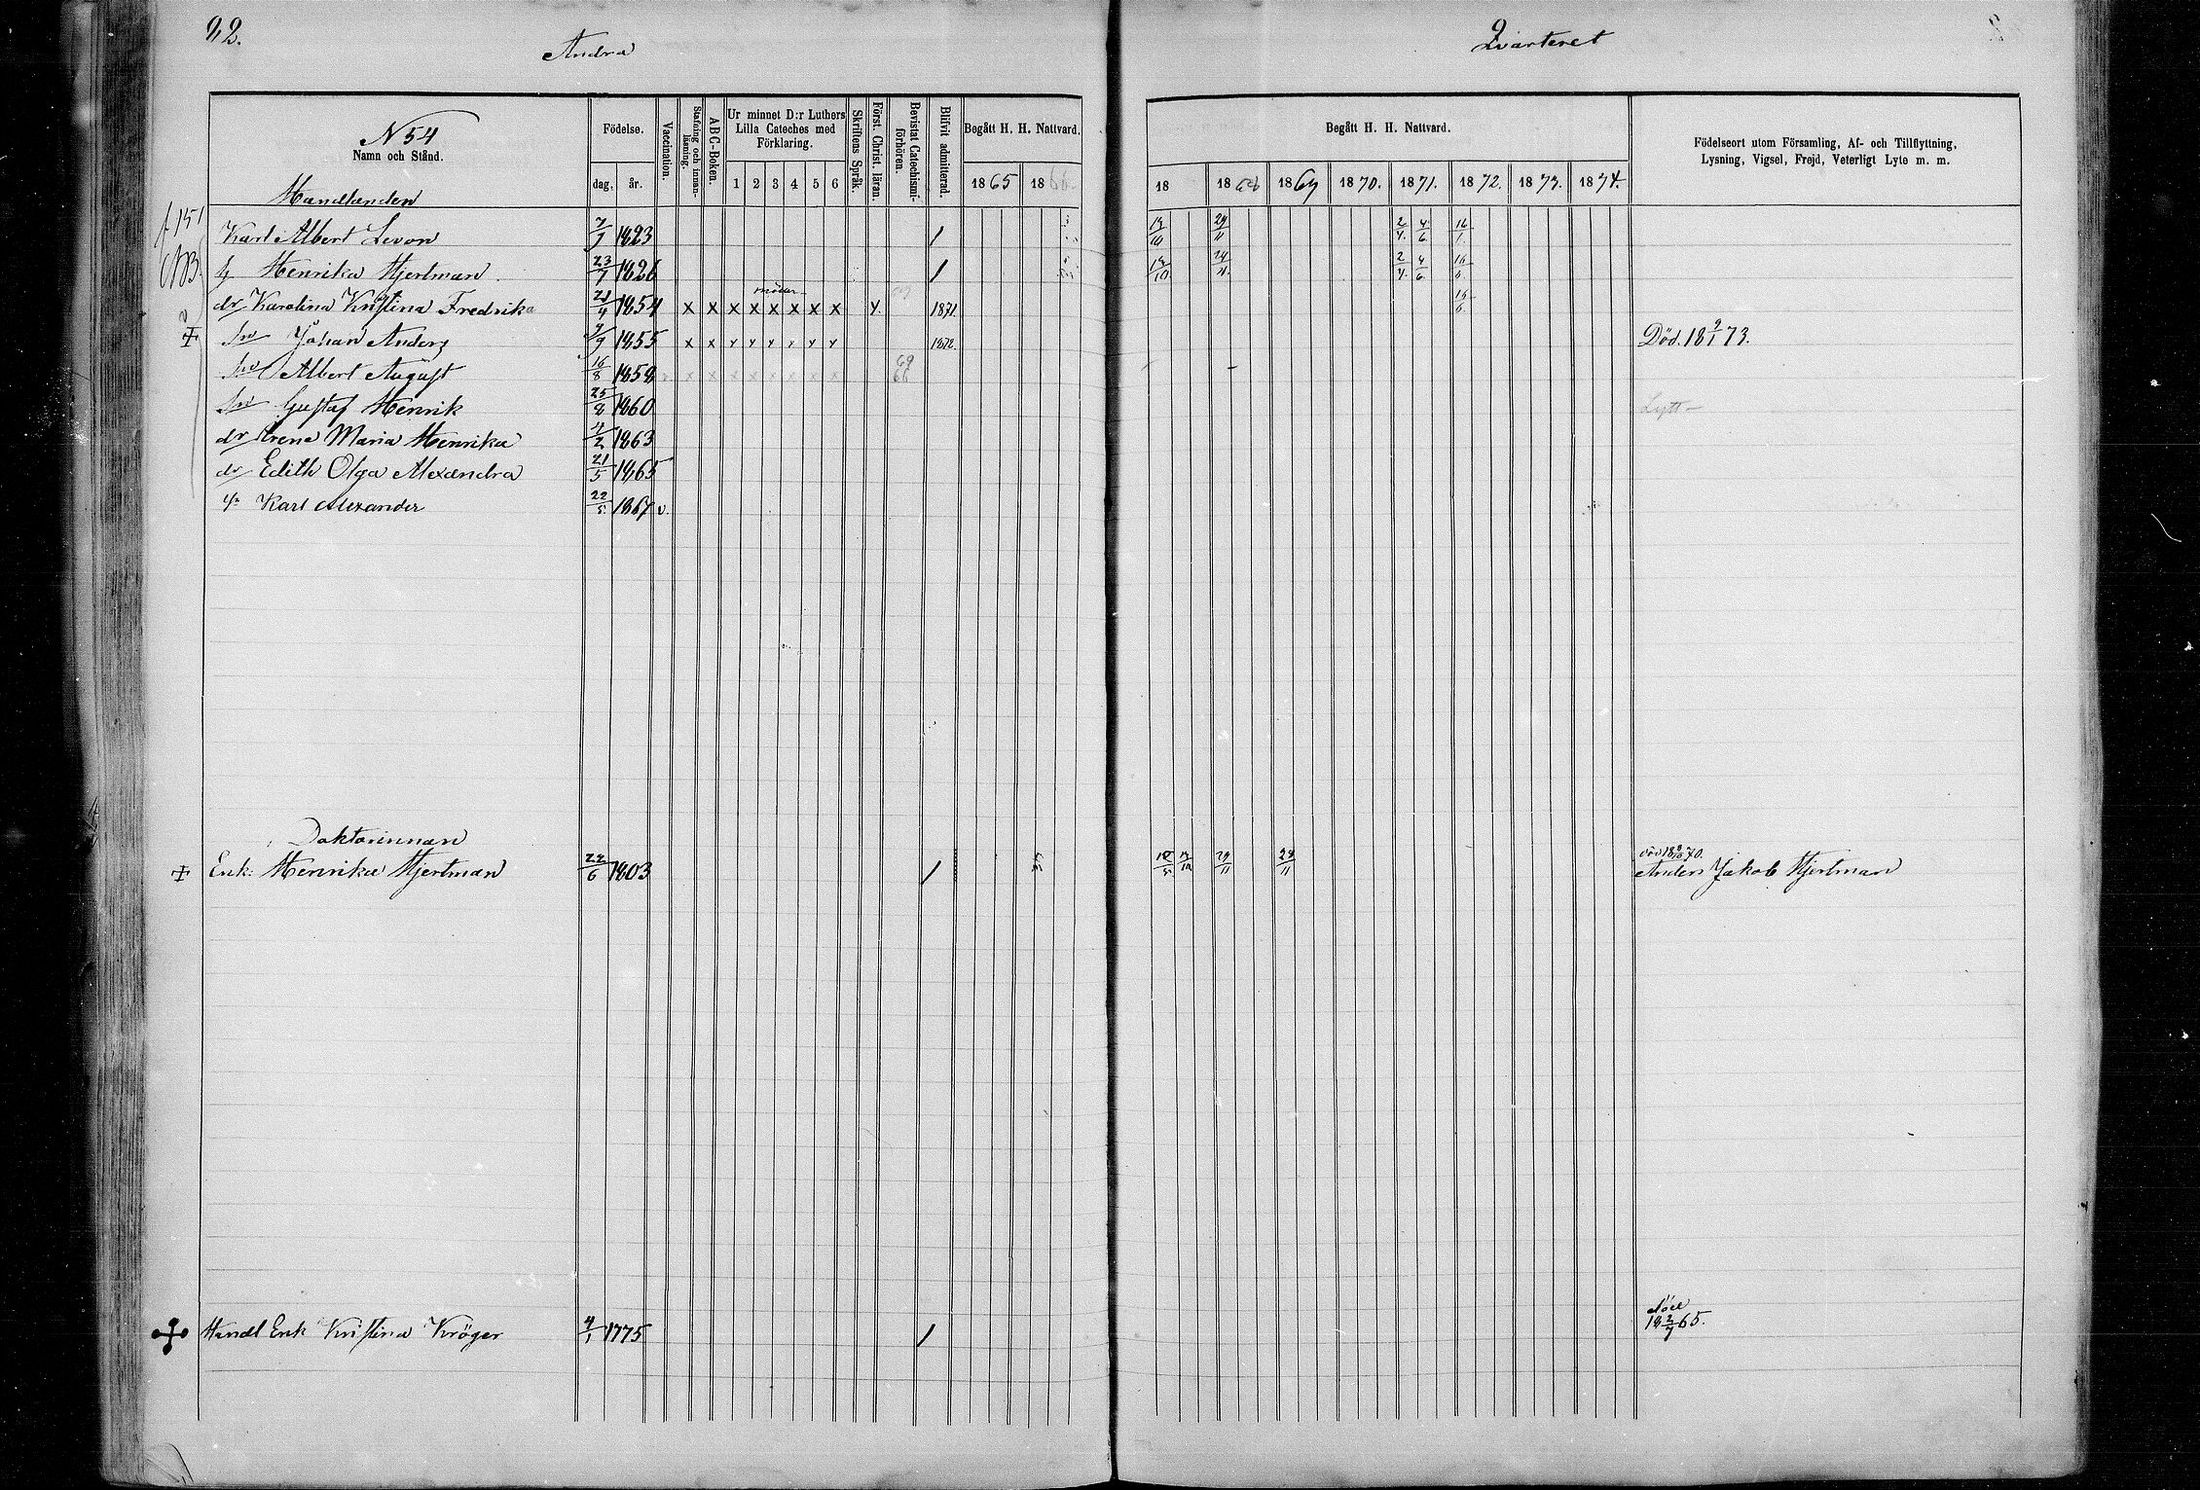 92.
Andra
Qvarteret
N 54
Namn och Stånd.
Födelse.
dag. år.
Vaccination.
Stafning och innan-läsning.
A B C-Boken.
Ur minnet D:r Luthers Lilla Cateches med Förklaring.
1 2 3 4 5 6
Skriftens Språk.
Först. Christ. läran.
Bevistat Catechismi-förhören.
Blifvit admitterad.
Begått H. H. Nattvard.
1865 1866.
Begått H. H. Nattvard.
18 1868 1869 1870. 1871. 1872. 1873. 1874.
Födelseort utom Församling, Af- och Tillflyttning,
Lysning, Vigsel, Frejd, Veterligt Lyte m. m.
Handlanden
f. 151
Karl Albert Levon 1823 29/11 2/4. 4/6. 16/
NB.
h Henrika Hjertman 23/ 1826 29/11. 2/4. 4/6. 16/
dr Karolina Kristina Fredrika 1854 x x x x x x x x 1871.
Sn Johan Anders /9 1855 x x 1872. Död. 18 9/1 73.
Sn Albert August 16/8 1858 x x x x x x x 69
Sn Gustaf Henrik 25/8 1860 Lytt
dr Irene Maria Henrika 4/2 1863
dr Edith Olga Alexandra 21/5 1865
Karl Alexander 22/5. 1867 v.
Doktorinnan
Enk. Henrika Hjertman 22/6 1803 29/11 28/11 död 18 70.
Anders Jakob Hjertman
död
Handl Enk Kristina Kröger 4/1 1775 18 2/7 65.